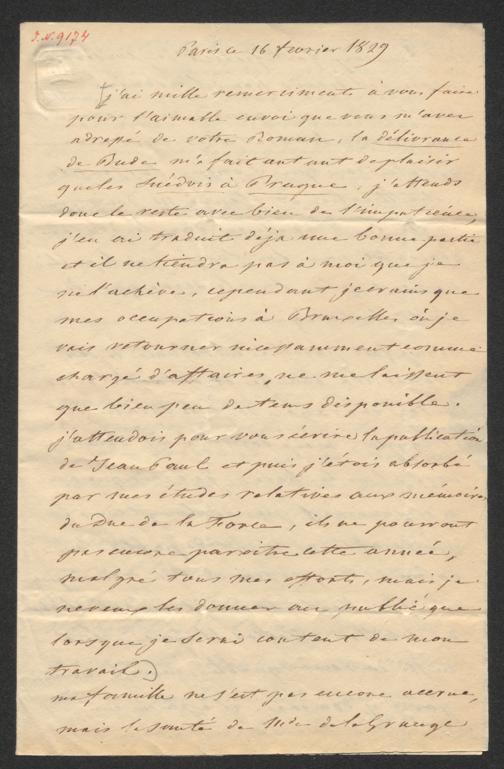 J.N.9174
Paris ce 16 fevrier 1829
j'ai mille remerciments à vous faire
pour l'aimable envoi que vous m'avez
adressé de votre Roman, la délivrance
de Bude m'a fait autant de plaisir
que les Suédois à Prague, j'attends
donc le reste avec bien de l'impatience,
j'en ai traduit deja une bonne partie
et il ne tiendra pas à moi que je
ne l'achève, cependant je crains que
mes occupations à Bruxelles où je
vais retourner incessamment comme
chargé d'affaires, ne me laissent
que bien peu de tems disponible.
j'attendois pour vous écrire la publication
de Jean Paul et puis j'étois absorbé
par mes études relatives aux mémoires
du Duc de la Force, ils ne pourront
pas encore paroitre cette année,
malgré tous mes efforts, mais je
ne veux les donner au public que
lorsque je serai content de mon
travail.
ma famille ne s'est pas encore accrue,
mais la santé de Mde de la Grange